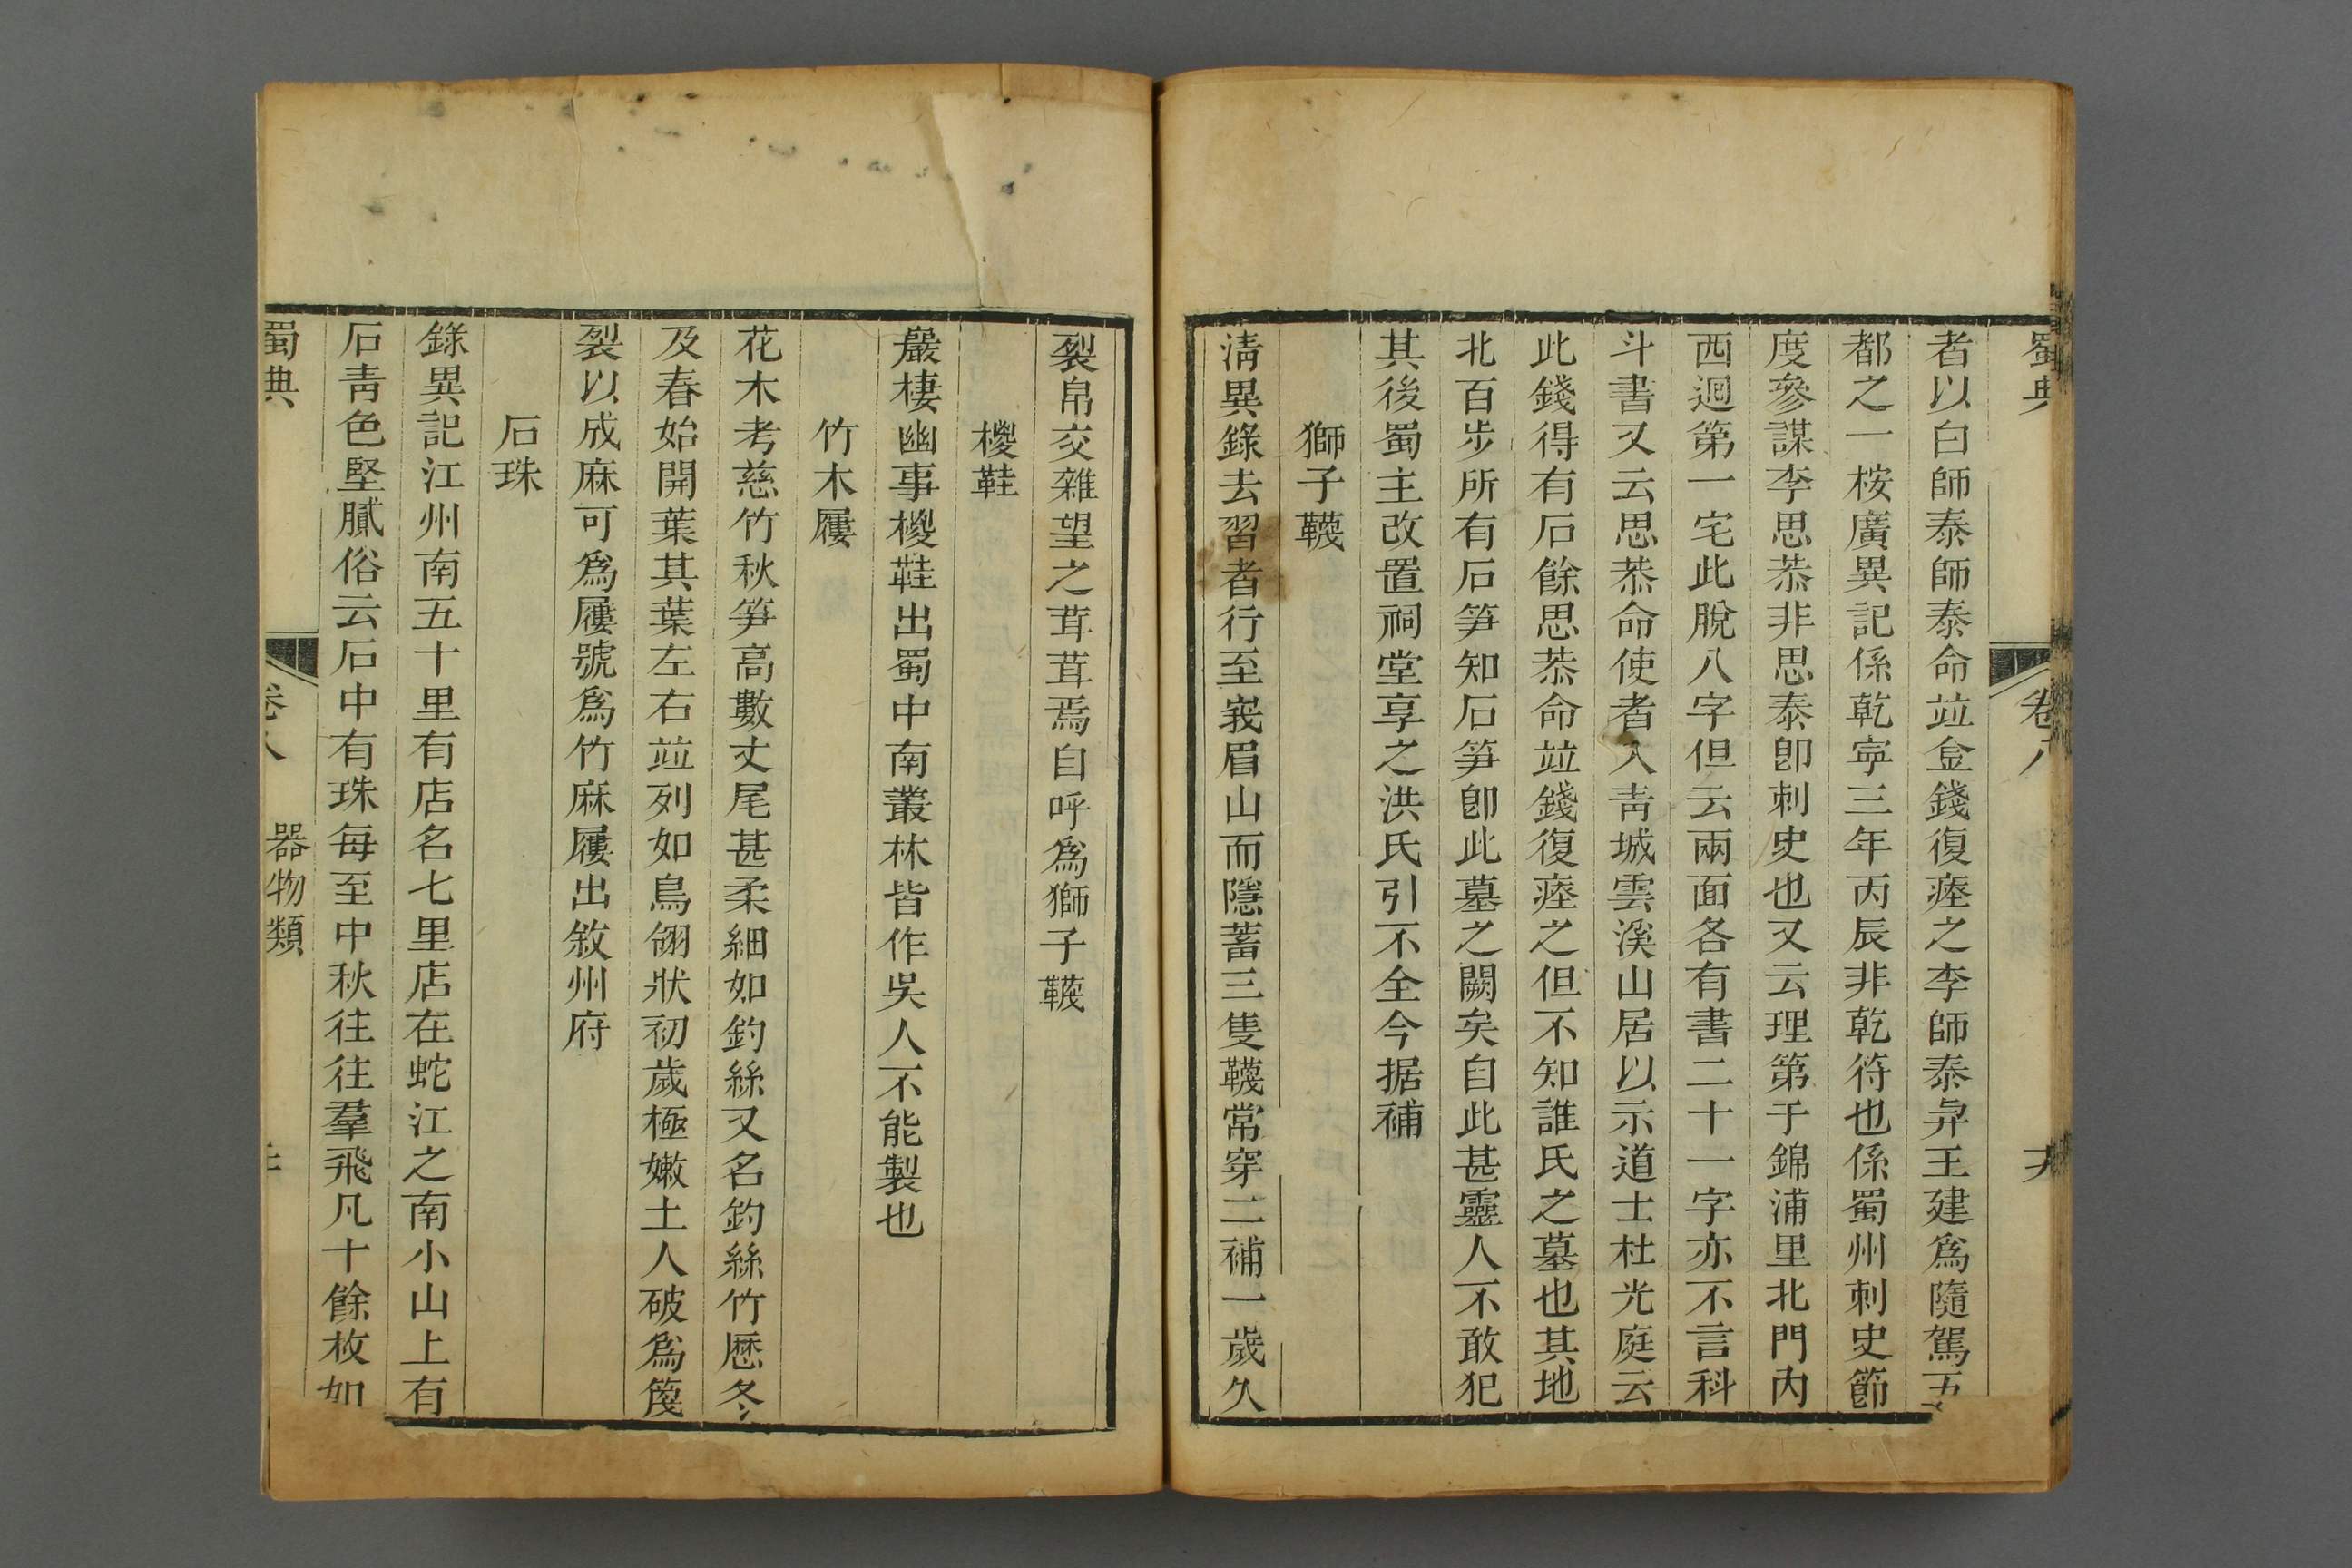 蜀典 卷八
者以白師泰師泰命竝金錢復瘞之李師泰舁王建爲隨駕五
都之一桉廣異記係乾寕三年丙辰非乾符也係蜀州刺史節
度參謀李思恭非思泰卽刺史也又云理第于錦浦里北門內
西迴第一宅此脫八字但云兩面各有書二十一字亦不言科
斗書又云思恭命使者入靑城雲溪山居以示道士杜光庭云
此錢得有石餘思恭命竝錢復瘞之但不知誰氏之墓也其地
北百步所有石笋知石笋卽此墓之闕矣自此甚靈人不敢犯
其後蜀主改置祠堂享之洪氏引不全今据補
獅子韈
淸異錄去習者行至峩眉山而隱蓄三隻韈常穿二補一歲久
裂帛交雜望之茸茸焉自呼爲獅子韈
椶鞋
巖棲幽事椶鞋出蜀中南叢林皆作吳人不能製也
竹木屨
花木考慈竹秋笋高數丈尾甚柔細如釣絲又名釣絲竹歷冬
及春始開葉其葉左右竝列如鳥翎狀初歲極嫩土人破爲篾
裂以成麻可爲屨號爲竹麻屨出敘州府
石珠
錄異記江州南五十里有店名七里店在蛇江之南小山上有
石靑色堅膩俗云石中有珠每至中秋往往羣飛凡十餘枚如
蜀典 卷八 器物類